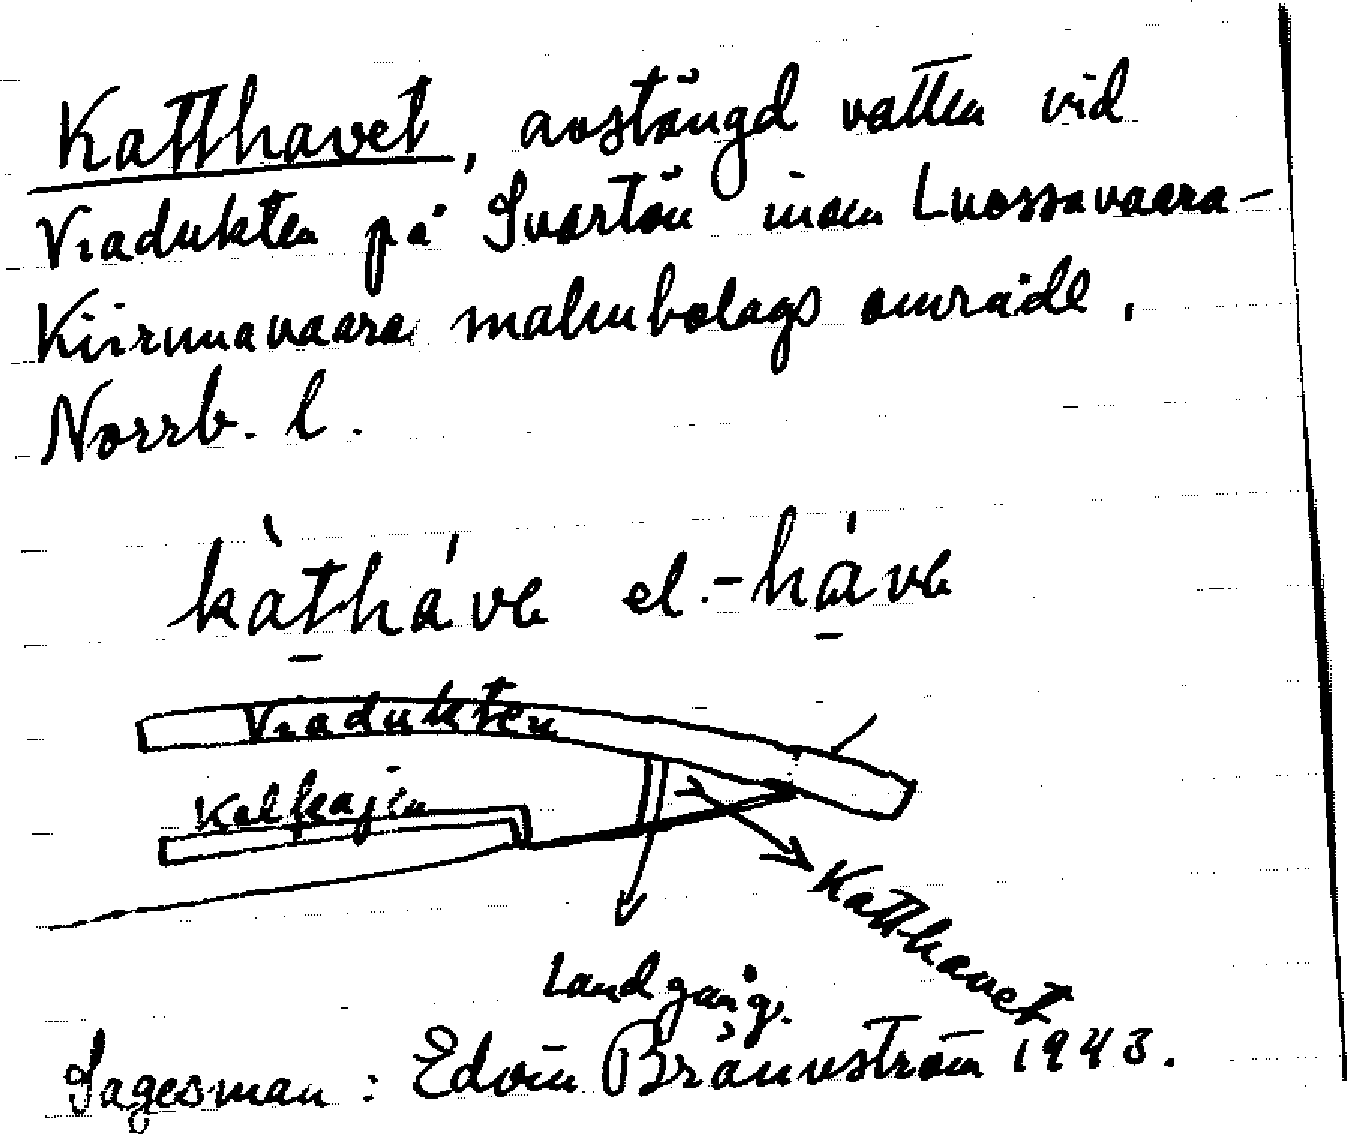 Katthavet, avstängd vatten vid
Viadukten på Svartön inom Luossavaara-
Kiirunavaara malmbolags område,
Norrb. l.
kàtháve el.-háve
Viadukten
Kolkajen
Katthavet
Landgång.
Sagesman: Edvin Brännström 1943.